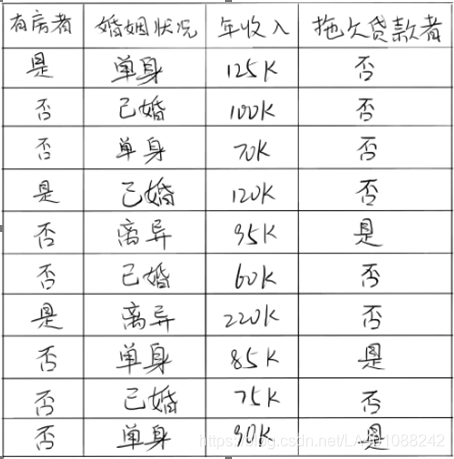 有房者 婚姻状况 年收入 拖欠贷款者
是 单身 125K 否
否 已婚 100K 否
否 单身 70K 否
是 已婚 120K 否
否 离异 95K 是
否 已婚 60K 否
是 离异 220K 否
否 单身 85K 是
否 已婚 75K 否
否 单身 90K 是